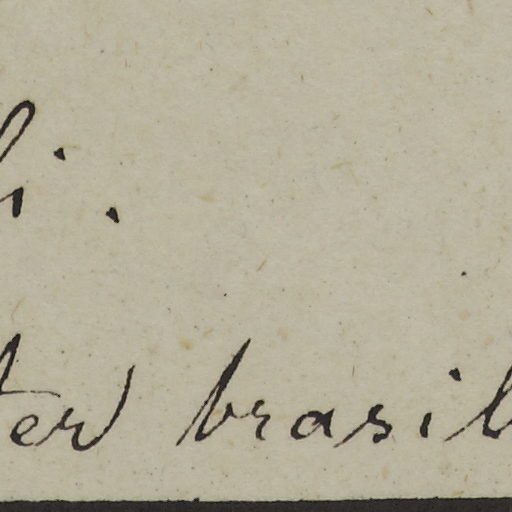 hi.
ter brasil